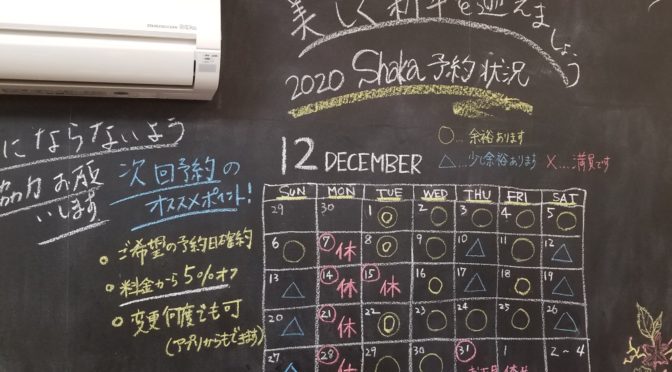 美しく新年を迎えましょう
2020 Shaka 予約状況
にならないよう
協力お願
いします
次回予約の
オススメポイント!
・ご希望の予約日確約
・料金から5%オフ
・変更何度でも可
(アプリからもできます)
12 DECEMBER
○…余裕あります
△…少し余裕あります ×…満員です
SUN MON TUE WED THU FRI SAT
29 30 1 ◎ 2 ○ 3 ○ 4 ○ 5 ○
6 ○ 7 休 8 ◎ 9 ○ 10 △ 11 ○ 12 △
13 △ 14 休 15 休 16 ○ 17 △ 18 ○ 19 △
20 △ 21 休 22 ◎ 23 ○ 24 ○ 25 ○ 26 △
27 △ 28 休 29 30 31 1 2~4